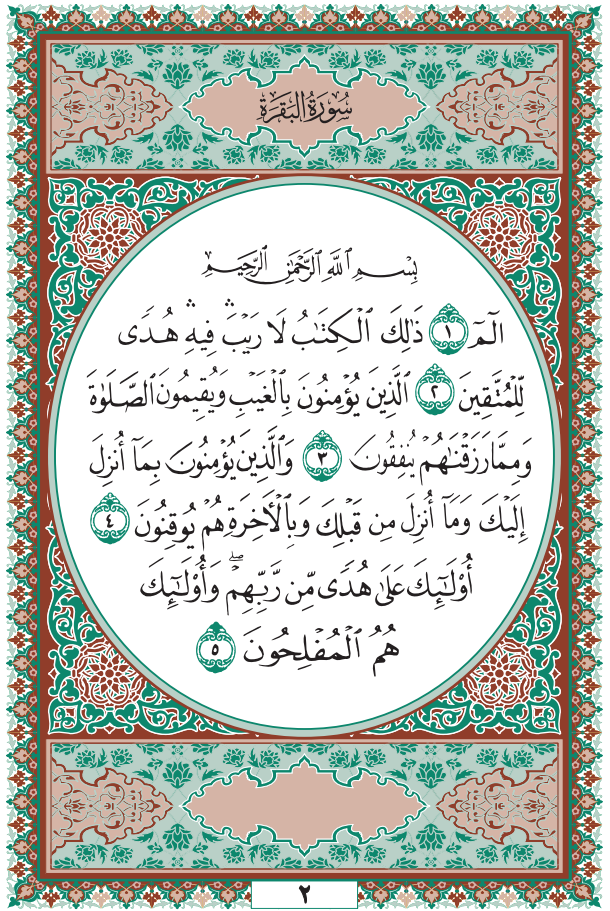 سُورَةُ البَقَرَةِ
بِسْمِ ٱللَّهِ ٱلرَّحْمَٰنِ ٱلرَّحِيمِ
الٓمٓ ١ ذَٰلِكَ ٱلْكِتَٰبُ لَا رَيْبَۛ فِيهِۛ هُدًى
لِّلْمُتَّقِينَ ٢ ٱلَّذِينَ يُؤْمِنُونَ بِٱلْغَيْبِ وَيُقِيمُونَ ٱلصَّلَوٰةَ
وَمِمَّا رَزَقْنَٰهُمْ يُنفِقُونَ ٣ وَٱلَّذِينَ يُؤْمِنُونَ بِمَآ أُنزِلَ
إِلَيْكَ وَمَآ أُنزِلَ مِن قَبْلِكَ وَبِٱلْأَخِرَةِ هُمْ يُوقِنُونَ ٤
أُو۟لَٰٓئِكَ عَلَىٰ هُدًى مِّن رَّبِّهِمْۖ وَأُو۟لَٰٓئِكَ
هُمُ ٱلْمُفْلِحُونَ ٥
٢